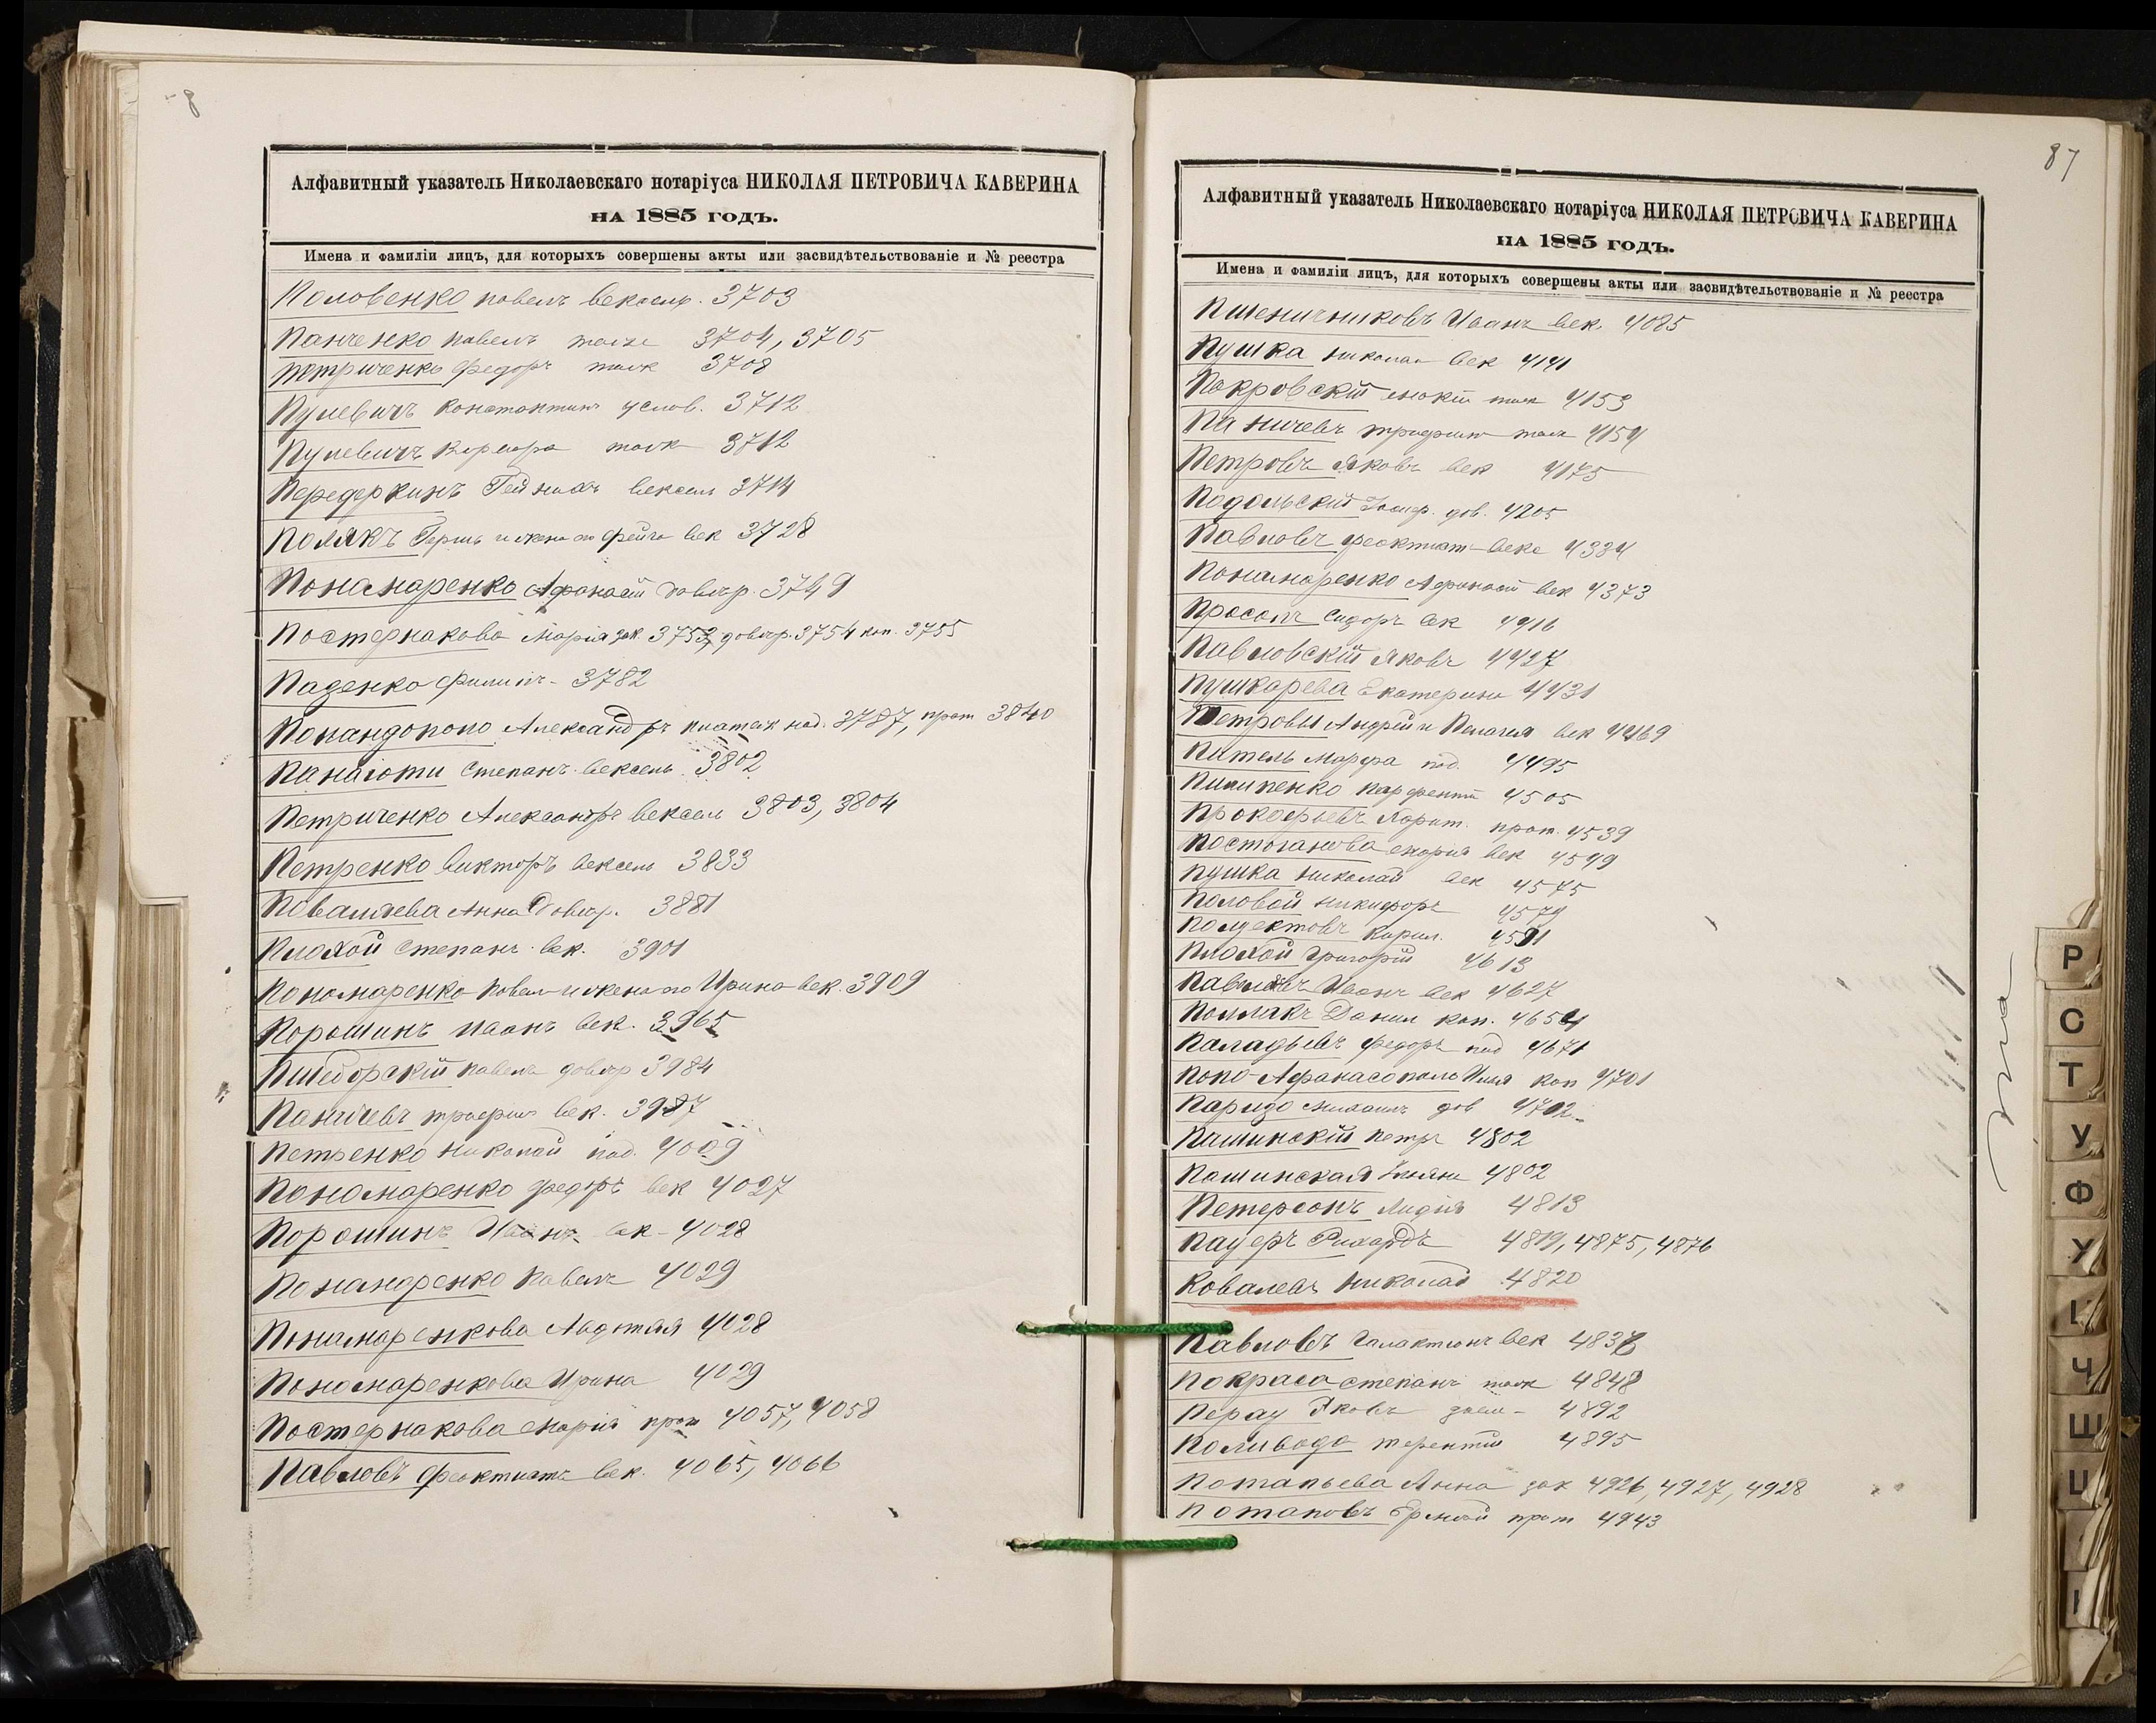 Алфавитный указатель Николаевскаго нотаріуса НИКОЛАЯ ПЕТРОВИЧА КАВЕРИНА
НА 1885 ГОДЪ.
Имена и фамиліи лицъ, для которыхъ совершены акты или засвидѣтельствованіе и № реестра
Половенко Павелъ вексель. 3703
Панченко Павелъ тоже 3704, 3705
Петриченко Федоръ тоже 3708
Пулевичъ Константинъ услов. 3712
Пулевичъ тоже 3712
Передеркинъ вексель 3714
Полякъ Гершъ и жена его Фейга век 3728
Понамаренко Афанасій довѣр. 3749
Постернакова Марія зак 3753, довѣр. 3754 коп. 3755
Паденко Филиппъ - 3782
Попандополо Александръ 3787, прот 3840
Панаіоти Степанъ вексель 3802
Петриченко Александръ вексель 3803, 3804
Петренко Викторъ вексель 3833
Поваляева Анна довѣр. 3881
Плохой Степанъ век. 3901
Пономаренко Павелъ и жена его Ирина век. 3909
Порошинъ Иванъ век. 3965
Пшеборскій Павелъ довѣр 3984
Паничевъ Трифонъ век. 3987
Петренко Николай под. 4009
Пономаренко Федоръ век 4027
Порошинъ Иванъ век - 4028
Понамаренко Павелъ 4029
Понамаренкова Авдотья 4028
Пономаренкова Ирина 4029
Постернакова Марія прот 4057, 4058
Павловъ Феоктистъ век. 4065, 4066
87
Алфавитный указатель Николаевскаго нотаріуса НИКОЛАЯ ПЕТРОВИЧА КАВЕРИНА
НА 1885 ГОДЪ.
Имена и фамиліи лицъ, для которыхъ совершены акты или засвидѣтельствованіе и № реестра
Пшеничниковъ Иванъ век. 4085
Пушка Николай век 4141
Покровскій тоже 4153
Паничевъ Трифонъ тоже 4154
Петровъ Яковъ век 4175
Подольскій дов. 4205
Павловъ Феоктистъ векс 4334
Понамаренко Афанасій век 4373
Просолъ Сидоръ век 4416
Павловскій Яковъ 4427
Пушкарева Екатерина 4431
Петровы Андрей и Пелагея век 4469
Пителъ Марфа под. 4495
Пилипенко Парфентій 4505
Прокофьевъ Харит. прот. 4539
Марія век 4549
Пушка Николай век 4575
Половой Никифоръ 4579
Полуектовъ Кирил. 4581
Плохой Григорій 4613
Павловъ Иванъ век 4627
Поллакъ Данил коп. 4654
Паладьевъ Федоръ под 4671
Попо-Афанасополо Илья коп 4701
Паридо Михаилъ дов 4702
Пашинскій Петръ 4802
Пашинская 4802
Петерсонъ Лидія 4813
Пауеръ Рихардъ 4819, 4875, 4876
Ковалевъ Николай 4820
Павловъ Галактіонъ век 4837
Покраса Степанъ тоже 4848
Перау Яковъ 4892
Поливода Терентій 4895
Потапьева Анна зак 4926, 4927, 4928
Потаповъ прот 4943
Р
С
Т
У
Ф
Ч
Ш